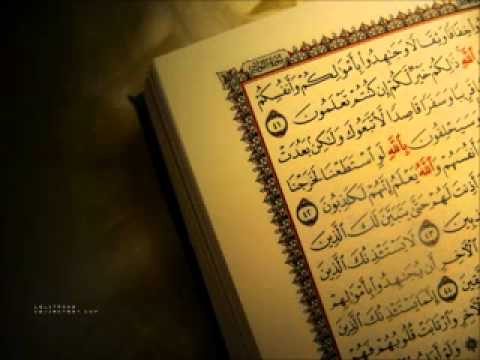 سُورَةُ التَّوْبَةِ
خِفَافًا وَثِقَالًا وَجَٰهِدُوا۟ بِأَمْوَٰلِكُمْ وَأَنفُسِكُمْ
ٱللَّهِ ذَٰلِكُمْ خَيْرٌ لَّكُمْ إِن كُنتُمْ تَعْلَمُونَ ٤١
قَرِيبًا وَسَفَرًا قَاصِدًا لَّٱتَّبَعُوكَ وَلَٰكِنۢ بَعُدَتْ
وَسَيَحْلِفُونَ بِٱللَّهِ لَوِ ٱسْتَطَعْنَا لَخَرَجْنَا
أَنفُسَهُمْ وَٱللَّهُ يَعْلَمُ إِنَّهُمْ لَكَٰذِبُونَ ٤٢
أَذِنتَ لَهُمْ حَتَّىٰ يَتَبَيَّنَ لَكَ ٱلَّذِينَ
٤٣ لَا يَسْتَـْٔذِنُكَ ٱلَّذِينَ
ٱلْـَٔاخِرِ أَن يُجَٰهِدُوا۟ بِأَمْوَٰلِهِمْ
٤٤ إِنَّمَا يَسْتَـْٔذِنُكَ ٱلَّذِينَ
ٱلْـَٔاخِرِ وَٱرْتَابَتْ قُلُوبُهُمْ فَهُمْ